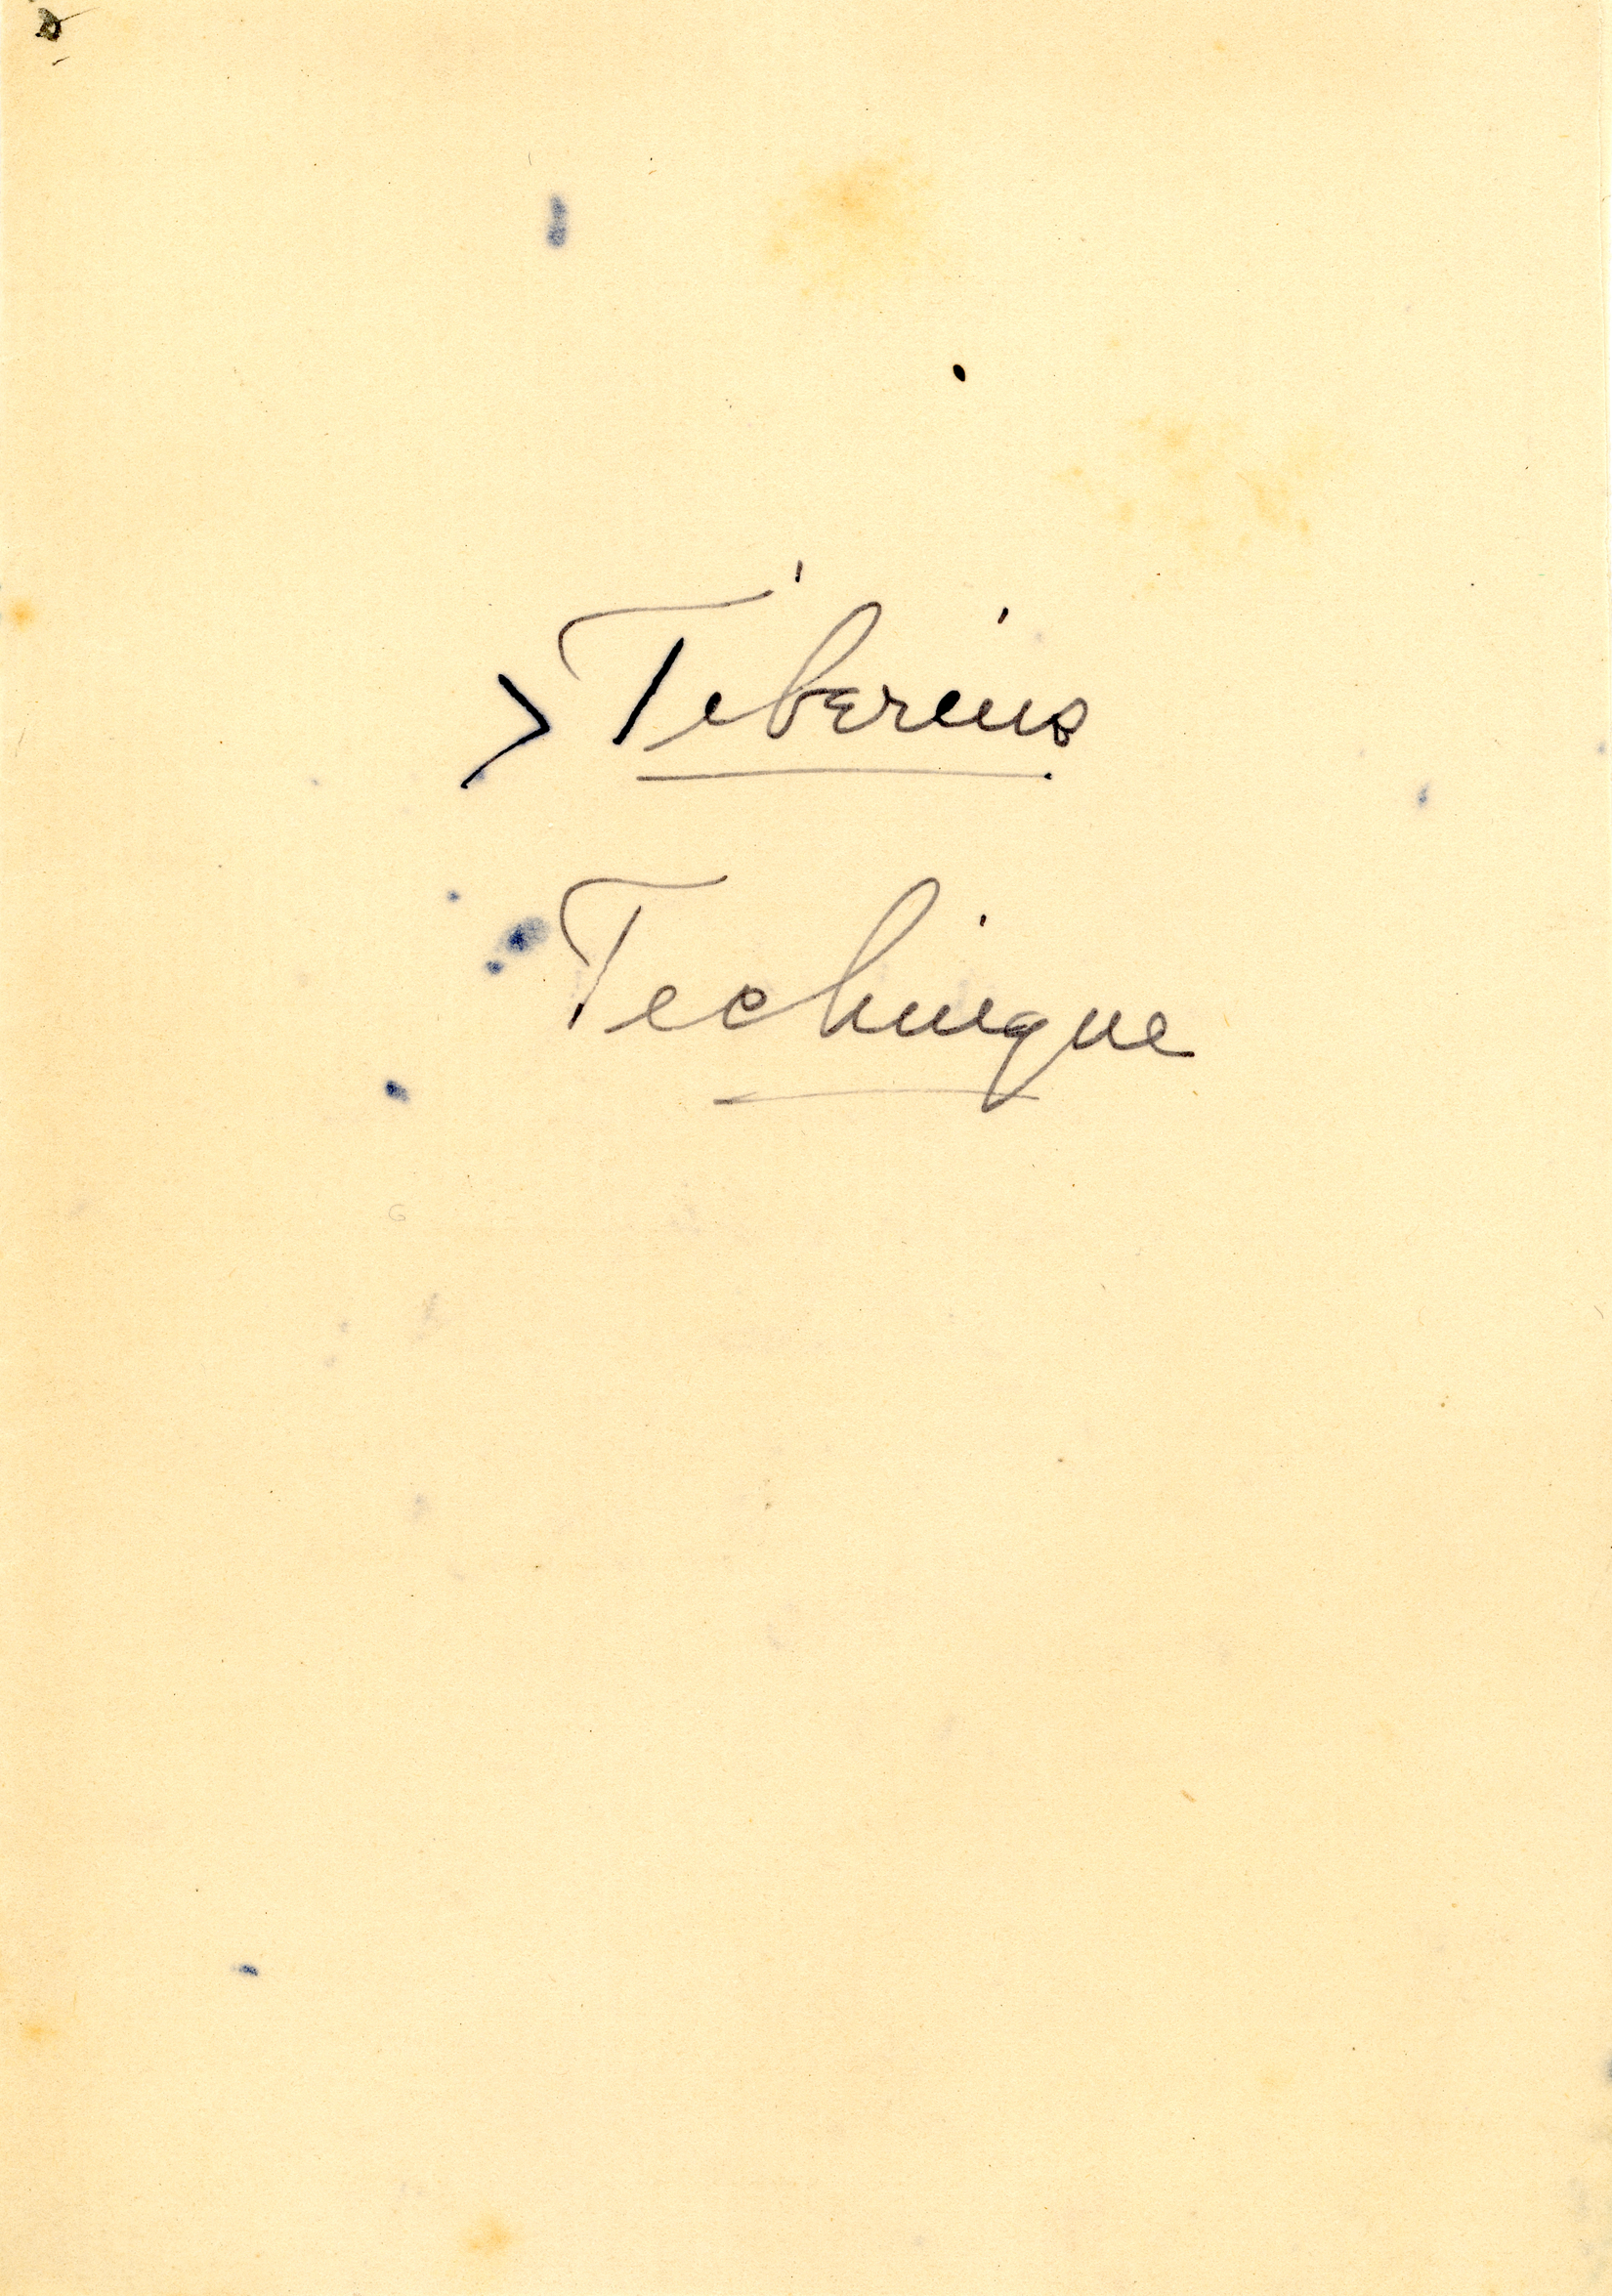 > Tiberius
Technique